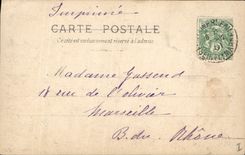 Imprimé
CARTE POSTALE
Ce côté est exclusivement réservé à l'adresse
Madame Jussend
18 rue de l'olivier
Marseille
B. du Rhône